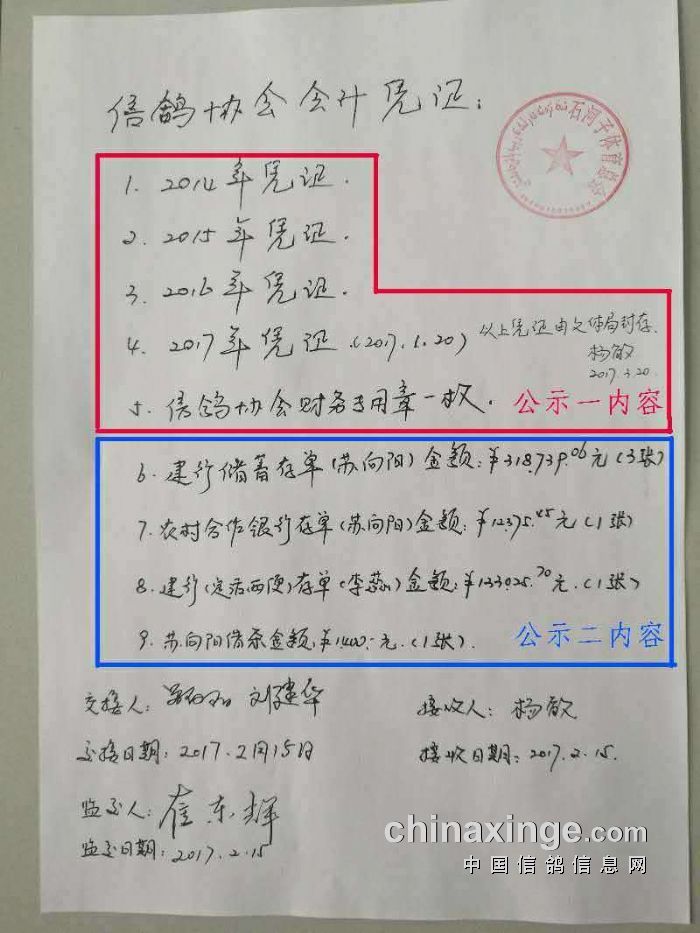 信鸽协会会计凭证:
石河子体育总会
1. 2014年凭证.
2. 2015年凭证.
3. 2016年凭证.
4. 2017年凭证.(2017.1.20)
以上凭证由文体局封存.
杨敏
2017.3.20.
5. 信鸽协会财务专用章一枚.
公示一内容
6. 建行储蓄存单(苏向阳)金额:¥318,739.06元(3张)
7. 农村合作银行存单(苏向阳)金额:¥12375.45元(1张)
8. 建行(定活两便)存单(李蕊)金额:¥133025.70元.(1张)
9. 苏向阳借条金额:¥1400.-元.(1张).
公示二内容
交接人: 刘建华
接收人: 杨敏
交接日期: 2017.2月15日
接收日期: 2017.2.15.
监交人: 崔东辉
监交日期: 2017.2.15
chinaxinge.com
中国信鸽信息网